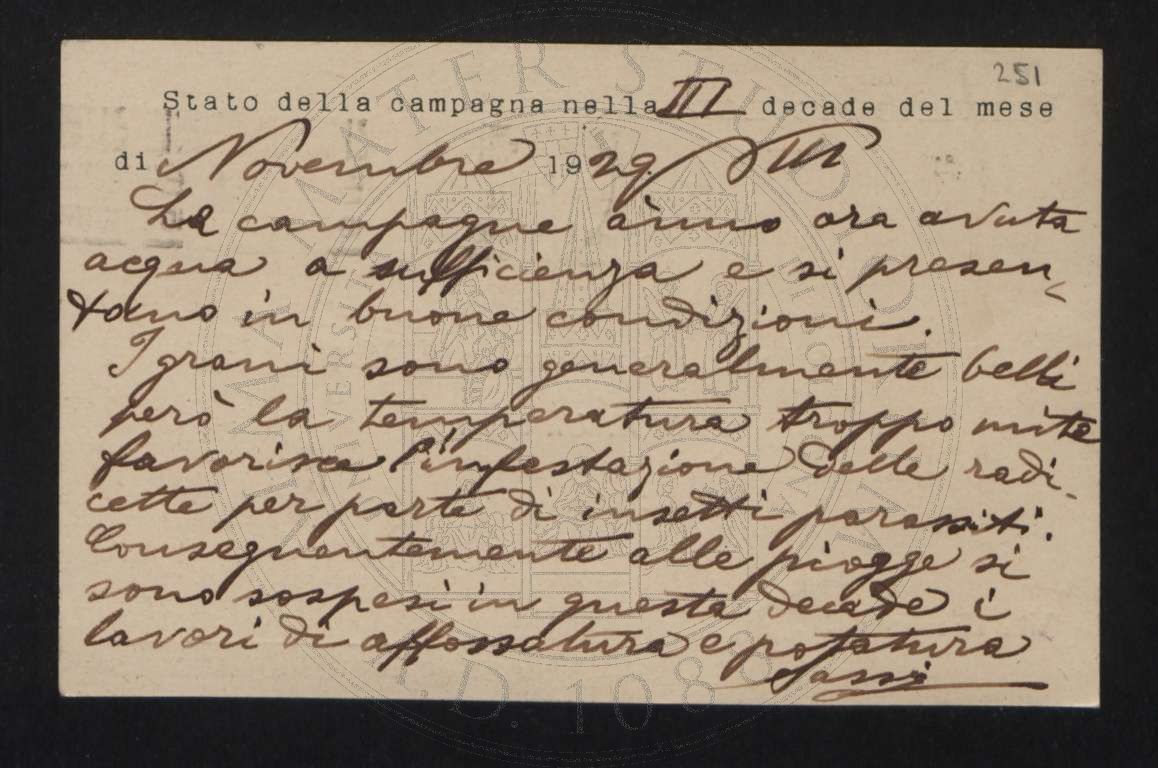 251
Stato della campagna nella III decade del mese
di Novembre 1929. VIII
Le campagne ànno ora avuta
acqua a sufficienza e si presen-
tano in buone condizioni.
I grani sono generalmente belli
però la temperatura troppo mite
favorisce l'infestazione delle radi-
cette per parte di insetti parassiti.
Conseguentemente alle piogge si
sono sospesi in questa decade i
lavori di affossatura e potatura
Sassi
ALMA MATER STUDIORUM
A.D. 1088